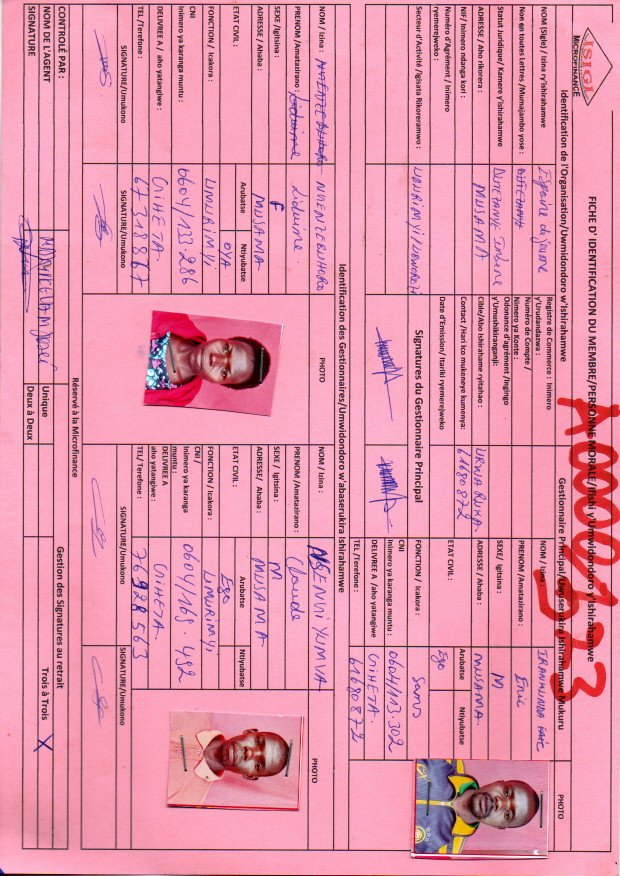 ISIGI
MICROFINANCE
FICHE D' IDENTIFICATION DU MEMBRE/PERSONNE MORALE/Ifishi y'Umwidondoro y'Ishirahamwe
A0000533
Identification de l'Organisation/Uwmidondoro w'Ishirahamwe
Gestionnaire Principal/Uwuserukira Ishirahamwe Mukuru
NOM (Sigle) / Izina ry'ishirahamwe
Non en toutes Lettres /Mumajambo yose :
Statut Juridique/ Kamere y'ishirahamwe
ADRESSE / Aho rikorera :
MUSAMA
NIF/ Inimero ndanga kori :
Numéro d'Agrément / Inimero ryemerejweko :
Secteur d'Activité /Igisata Rikoreramwo :
Registre de Commerce : Inimero y'Urudandazwa :
Numéro de Compte / Nimero ya Konte :
Odonance d'agrément /Ingingo y'Umushikiranganji :
Cible/Abo ishirahame ryitaho :
URWARUKA
Contact /Hari izo mukeneye kumenya:
61680872
Date d'Emission/ Itariki ryemerejweko
Signatures du Gestionnaire Principal
NOM / Izina :
IRANKUNDA
PRENOM /Amatazirano :
Eric
SEXE/ Igitsina :
M
ADRESSE / Ahaba :
MUSAMA
ETAT CIVIL :
Arubatse Ntiyubatse
Ego
FONCTION / Icakora :
CNI
Inimero ya karanga muntu :
0604/113.302
DELIVREE A /aho yatangiwe
GIHETA
TEL /Terefone :
61680872
PHOTO
Identification des Gestionnaires/Umwidondoro w'abaserukira Ishirahamwe
NOM / Izina :
PRENOM /Amatazirano :
SEXE /Igitsina :
F
ADRESSE / Ahaba :
MUSAMA
ETAT CIVIL :
Arubatse Ntiyubatse
OYA
FONCTION / Icakora :
UMURIMYI
CNI
Inimero ya karanga muntu :
0604/133.286
DELIVREE A / aho yatangiwe :
GIHETA
TEL /Terefone :
67318867
PHOTO
SIGNATURE/Umukono
SIGNATURE/Umukono
NOM / Izina :
NSENGIYUMVA
PRENOM /Amatazirano :
Claude
SEXE / Igitsina :
M
ADRESSE/ Ahaba :
MUSAMA
ETAT CIVIL :
Arubatse Ntiyubatse
Ego
FONCTION / Icakora :
UMURIMYI
CNI /
Inimero ya karanga muntu :
0604/169.492
DELIVREE A aho yatangiwe :
GIHETA
TEL/ Terefone :
76928563
PHOTO
SIGNATURE/Umukono
SIGNATURE/Umukono
Réservé à la Microfinance
CONTRÔLÉ PAR :
Gestion des Signatures au retrait
NOM DE L'AGENT
Unique
Trois à Trois
X
SIGNATURE
Deux à Deux